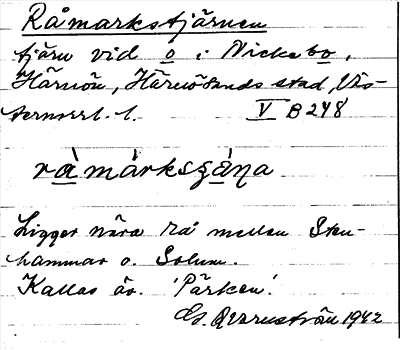 Råmarkstjärnen
tjärn vid o i Nickebo,
Härnön, Härnösands stad, Väs-
ternorrl. l. V B 248
Ligger nära rå mellan Sten-
hammar o. Solum.
Kallas äv. 'Pärken'.
G. Qvarnström 1942